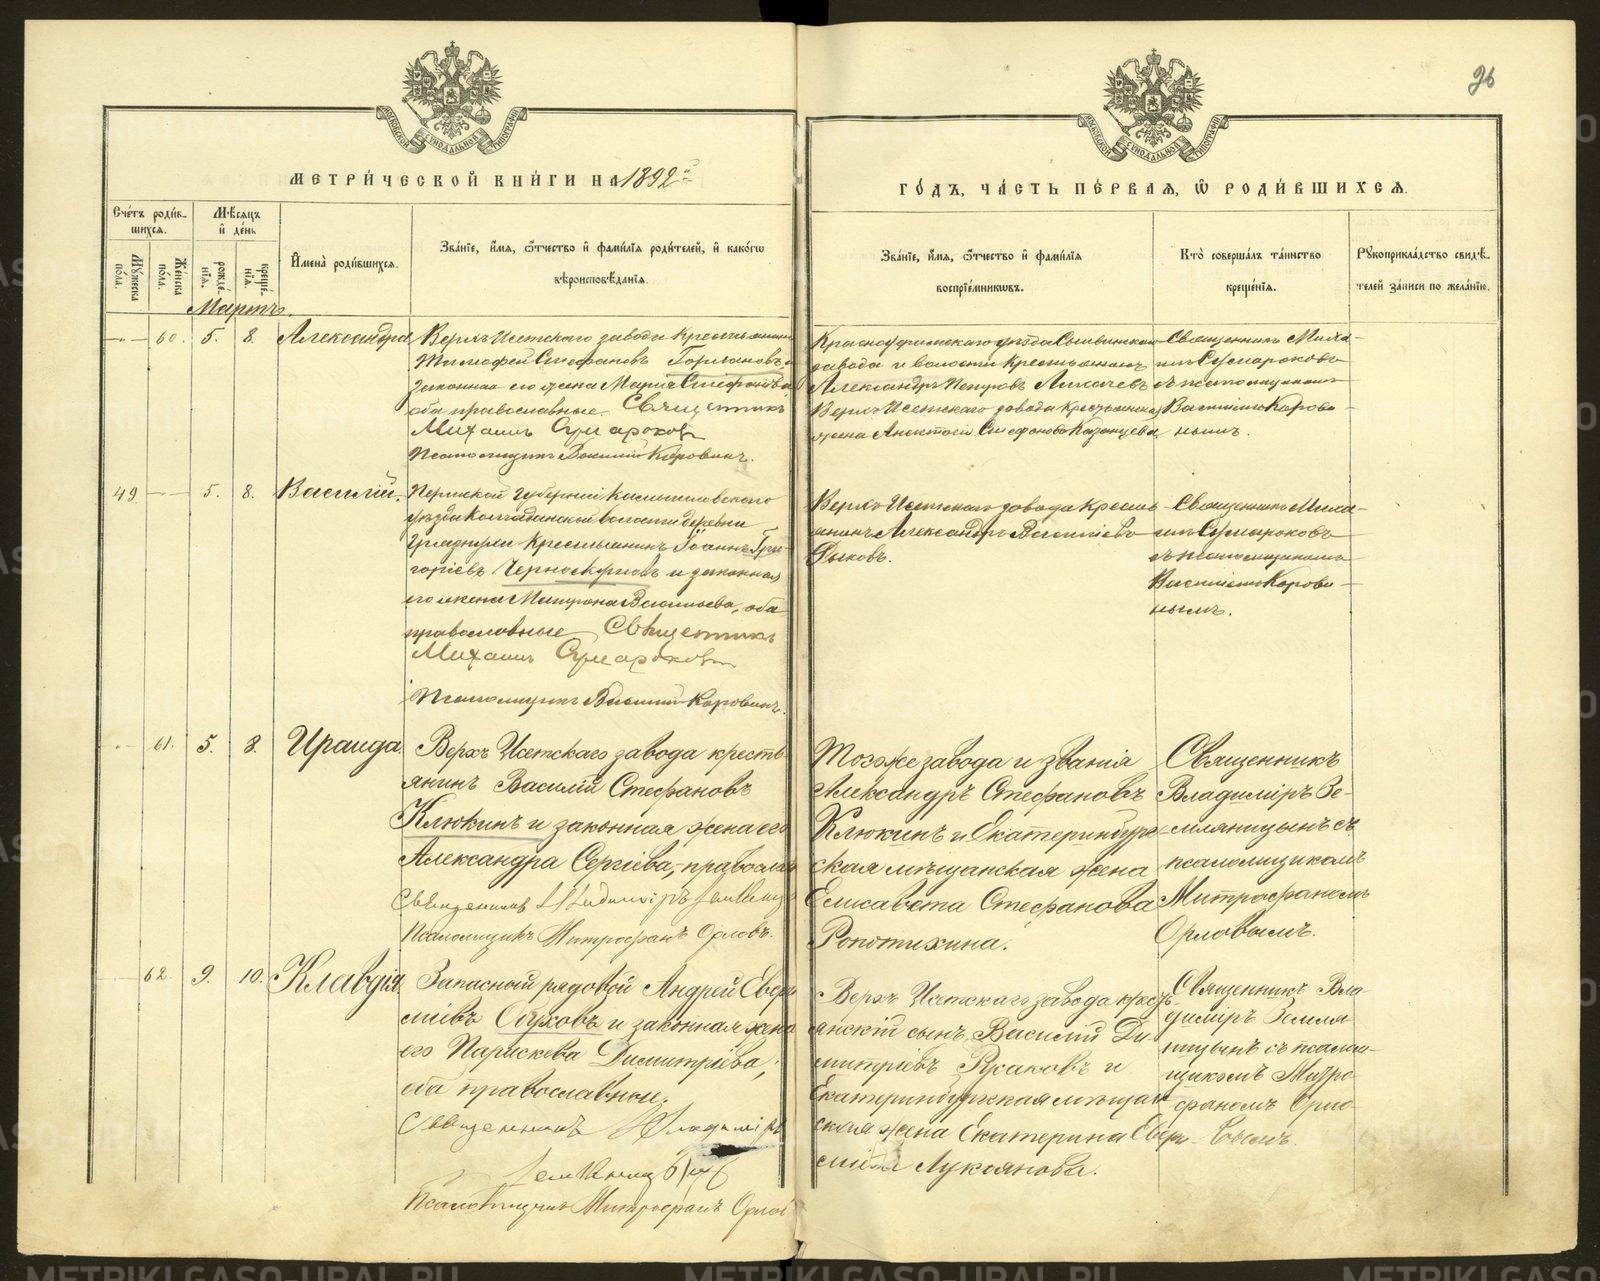 26
МОСКОВСКОЙ СУНОДАЛЬНОЙ ТИПОГРАФІИ
МОСКОВСКОЙ СУНОДАЛЬНОЙ ТИПОГРАФІИ
МЕТРИ́ЧЕСКОЙ КНИ́ГИ НА 1892й
ГО́ДЪ, ЧА́СТЬ ПЕ́РВАЯ, Ѿ РОДИ́ВШИХСЯ.
Сче́тъ роди́в-
шихся.
Му́жеска по́ла.
Же́нска по́ла.
Мѣ́сяцъ
и҆ де́нь
рожде́-
нїя.
креще́-
нїя.
И҆мена̀ роди́вшихся.
Зва́нїе, и҆́мя, ѻ҆́тчество и҆ фами́лїя роди́телей, и҆ како́гѡ
вѣроисповѣ́данїя.
Зва́нїе, и҆́мя, ѻ҆́тчество и҆ фами́лїя
воспрїе́мникѡвъ.
Кто̀ соверша́лъ та́инство
креще́нїя.
Рꙋкоприкла́дство свидѣ́-
телей за́писи по жела́нїю.
Мартъ.
60. 5. 8. Александра
Верхъ Исетскаго завода крестьянинъ
Тимофей Стефановъ Горбановъ и
законная его жена Марія Стефанова,
оба православные. Священникъ
Михаилъ Сумароковъ
Псаломщикъ Василій Коровинъ.
Красноуфимскаго уѣзда Сылвинскаго
завода и волости крестьянинъ
Александръ Петровъ Лихачевъ
Верхъ Исетскаго завода крестьянская
жена Анектосія Стефанова Казанцева
Священникъ Миха-
илъ Сумароковъ
съ псаломщикомъ
Василіемъ Корови-
нымъ.
49 5. 8. Василій.
Пермской губерніи Камышловскаго
уѣзда Колчеданской волости деревни
крестьянинъ Іоаннъ Гри-
горіевъ Черноскутовъ и законная
его жена Матрона Васильева, оба
православные Священникъ
Михаилъ Сумароковъ
Псаломщикъ Василій Коровинъ.
Верхъ Исетскаго завода кресть-
янинъ Александръ Василіевъ
Рыковъ.
Священникъ Миха-
илъ Сумароковъ
съ псаломщикомъ
Василіемъ Корови-
нымъ.
61. 5. 8. Ираида
Верхъ Исетскаго завода кресть-
янинъ Василій Стефановъ
Клюкинъ и законная жена его
Александра Сергіева, православ
Священникъ Владиміръ Земляницынъ
Псаломщикъ Митрофанъ Орловъ.
Тогоже завода и званія
Александръ Стефановъ
Клюкинъ и Екатеринбург-
ская мѣщанская жена
Елисавета Стефанова
Ропотихина.
Священникъ
Владиміръ Зе-
мляницынъ съ
псаломщикомъ
Митрофаномъ
Орловымъ.
62. 9. 10. Клавдія
Запасный рядовой Андрей Евсе-
міевъ Обуховъ и законная жена
его Парискева Димитріева,
оба православные.
Священникъ Владиміръ
Земляницынъ
Псаломщикъ Митрофанъ Орлов
Верхъ Исетскаго завода кресть-
янскій сынъ Василій Ди-
митріевъ Русаковъ и
Екатеринбургская мѣщан-
ская жена Екатерина
Лукоянова.
Священникъ Вла-
диміръ Земля-
ницынъ съ псалом-
щикомъ Митро-
фаномъ Орло-
вымъ.
METRIKI.GASO-URAL.RU